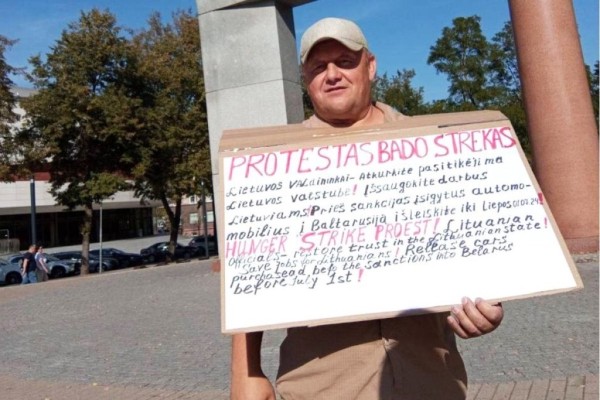 PROTESTAS BADO STREKAS
Lietuvos Valdininkai - Atkurkite pasitikėjima
Lietuvos vatstube! Išsaugokite darbus
Lietuviams! Prieš sankcijas įsigytus automo-
mobilius į Baltarusiją išleiskite iki Liepos 01.07.24!
HUNGER STRIKE PROEST! Lituanian
Officials - restore trust in the Lithuanian state!
save jobs for Lithuanians! Release cars
purchasead before the sanctions into Belarus
before July 1st!